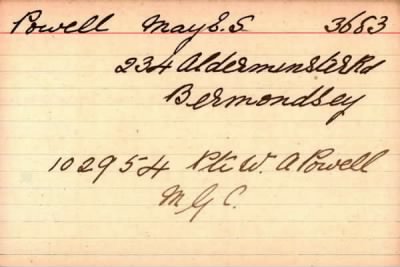 Powell May E. S 3683
234 Alderminster Rd
Bermondsey
102954 Pte W. A Powell
M G C.